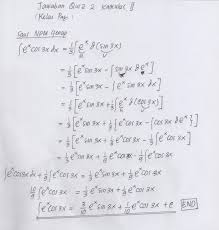 Jawaban Quiz 2 Kalkulus II
(Kelas Pagi)
Soal No
∫eˣcos3x dx = 1/3 ∫eˣ d(sin3x)
= 1/3 [eˣsin3x - ∫sin3x deˣ]
= 1/3 [eˣsin3x - ∫eˣsin3x dx]
= 1/3 [eˣsin3x + 1/3 ∫eˣ d(cos3x)]
= 1/3 [eˣsin3x + 1/3 [eˣcos3x - ∫cos3x deˣ]]
= 1/3 eˣsin3x + 1/9 eˣcos3x - 1/9 ∫eˣcos3x
∫eˣcos3x dx + 1/9 ∫eˣcos3x = 1/3 eˣsin3x + 1/9 eˣcos3x
10/9 ∫eˣcos3x = 1/3 eˣsin3x + 1/9 eˣcos3x
∫eˣcos3x = 3/10 eˣsin3x + 1/10 eˣcos3x + c END